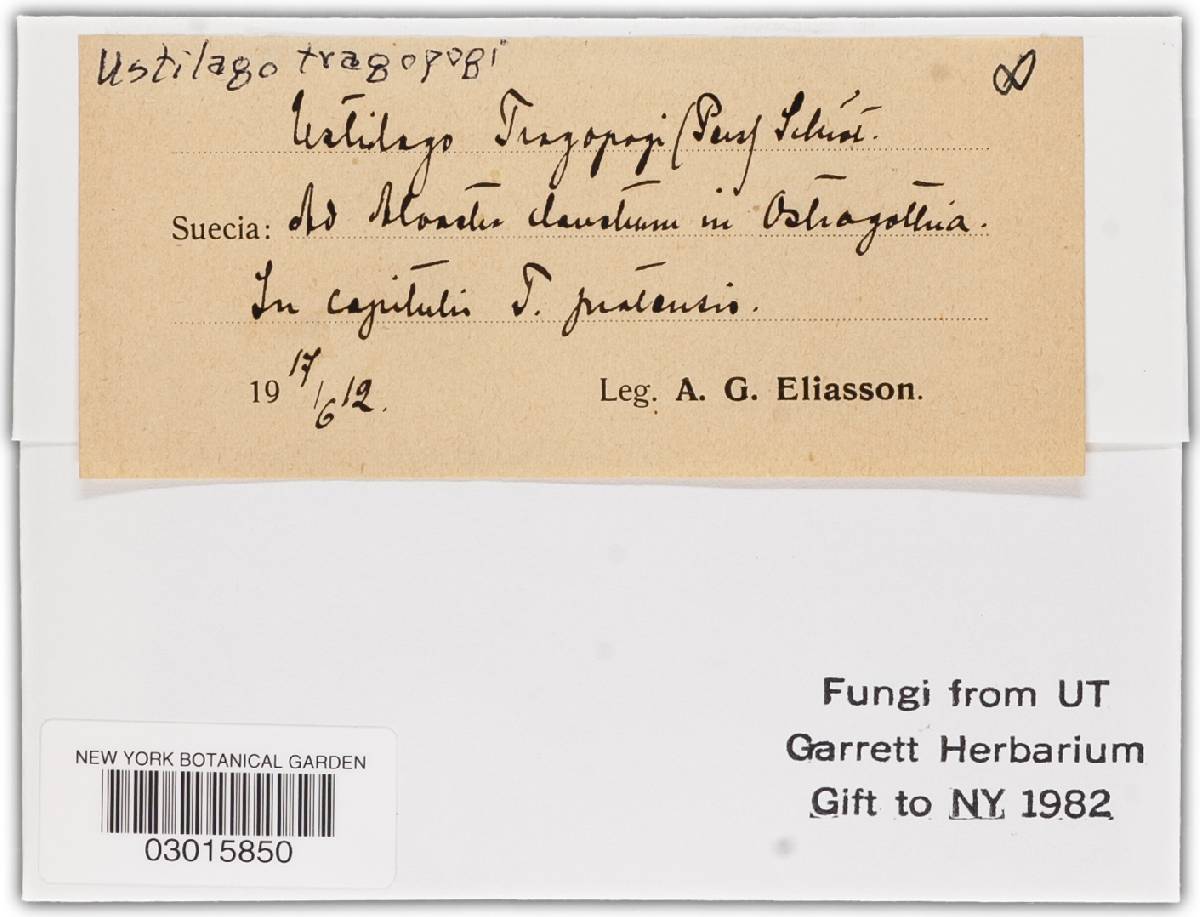 Ustilago tragopogi
Ustilago Tragopogi (Pers) Schröt.
Suecia: Ad claustrum in Ostrogothia.
In capitulis T. pratensis.
19 17/6 12. Leg. A. G. Eliasson.
Fungi from UT
Garrett Herbarium
Gift to NY 1982
NEW YORK BOTANICAL GARDEN
03015850